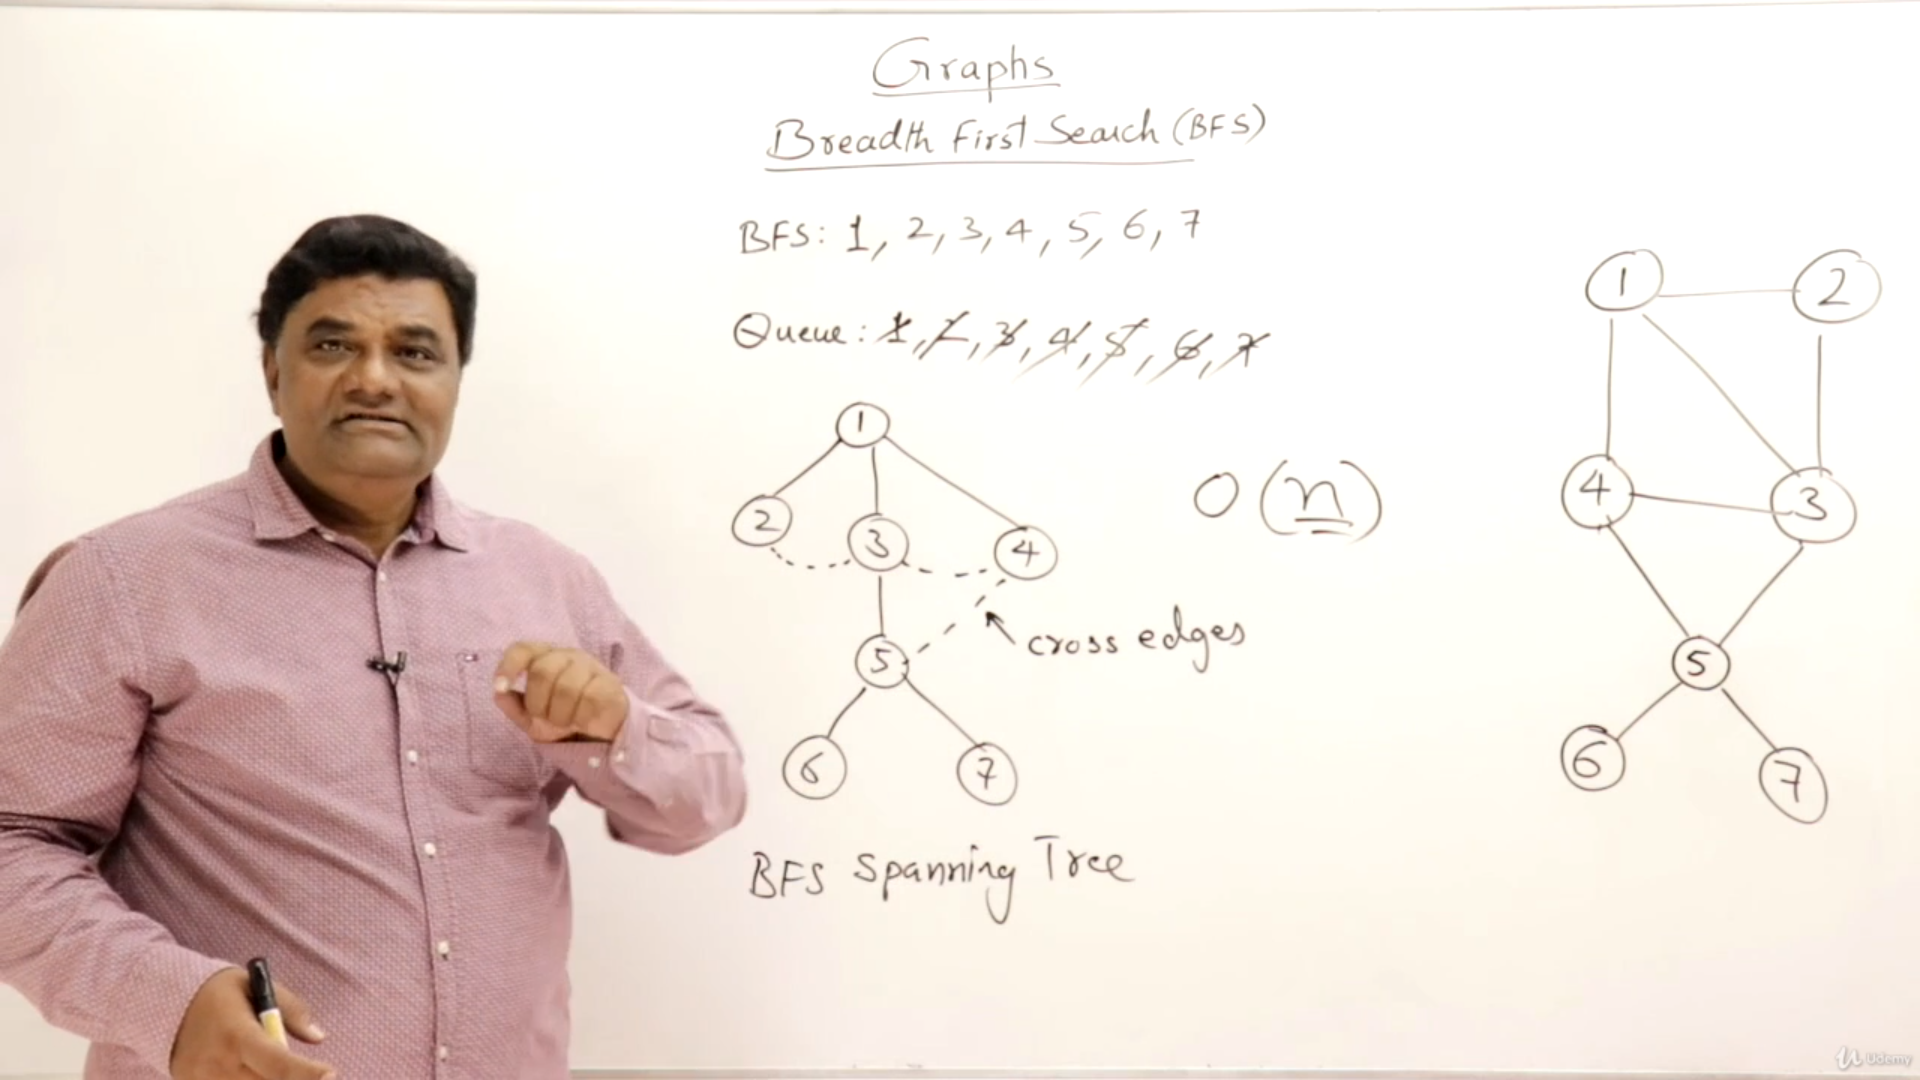 Graphs
Breadth First Search (BFS)
BFS: 1, 2, 3, 4, 5, 6, 7
Queue: 1, 2, 3, 4, 5, 6, 7
1
2
3
4
5
6
7
cross edges
BFS Spanning Tree
O(n)
1
2
4
3
5
6
7
Udemy